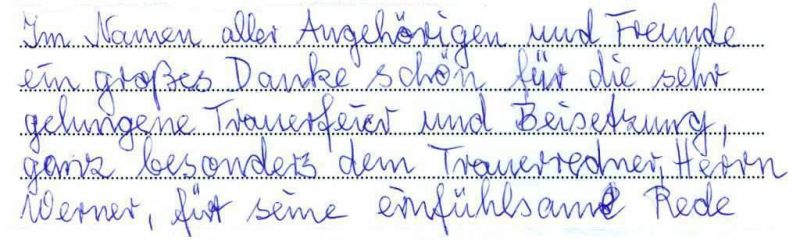 Im Namen aller Angehörigen und Freunde
ein großes Danke schön für die sehr
gelungene Trauerfeier und Beisetzung,
ganz besonders dem Trauerredner, Herrn
Werner, für seine einfühlsame Rede